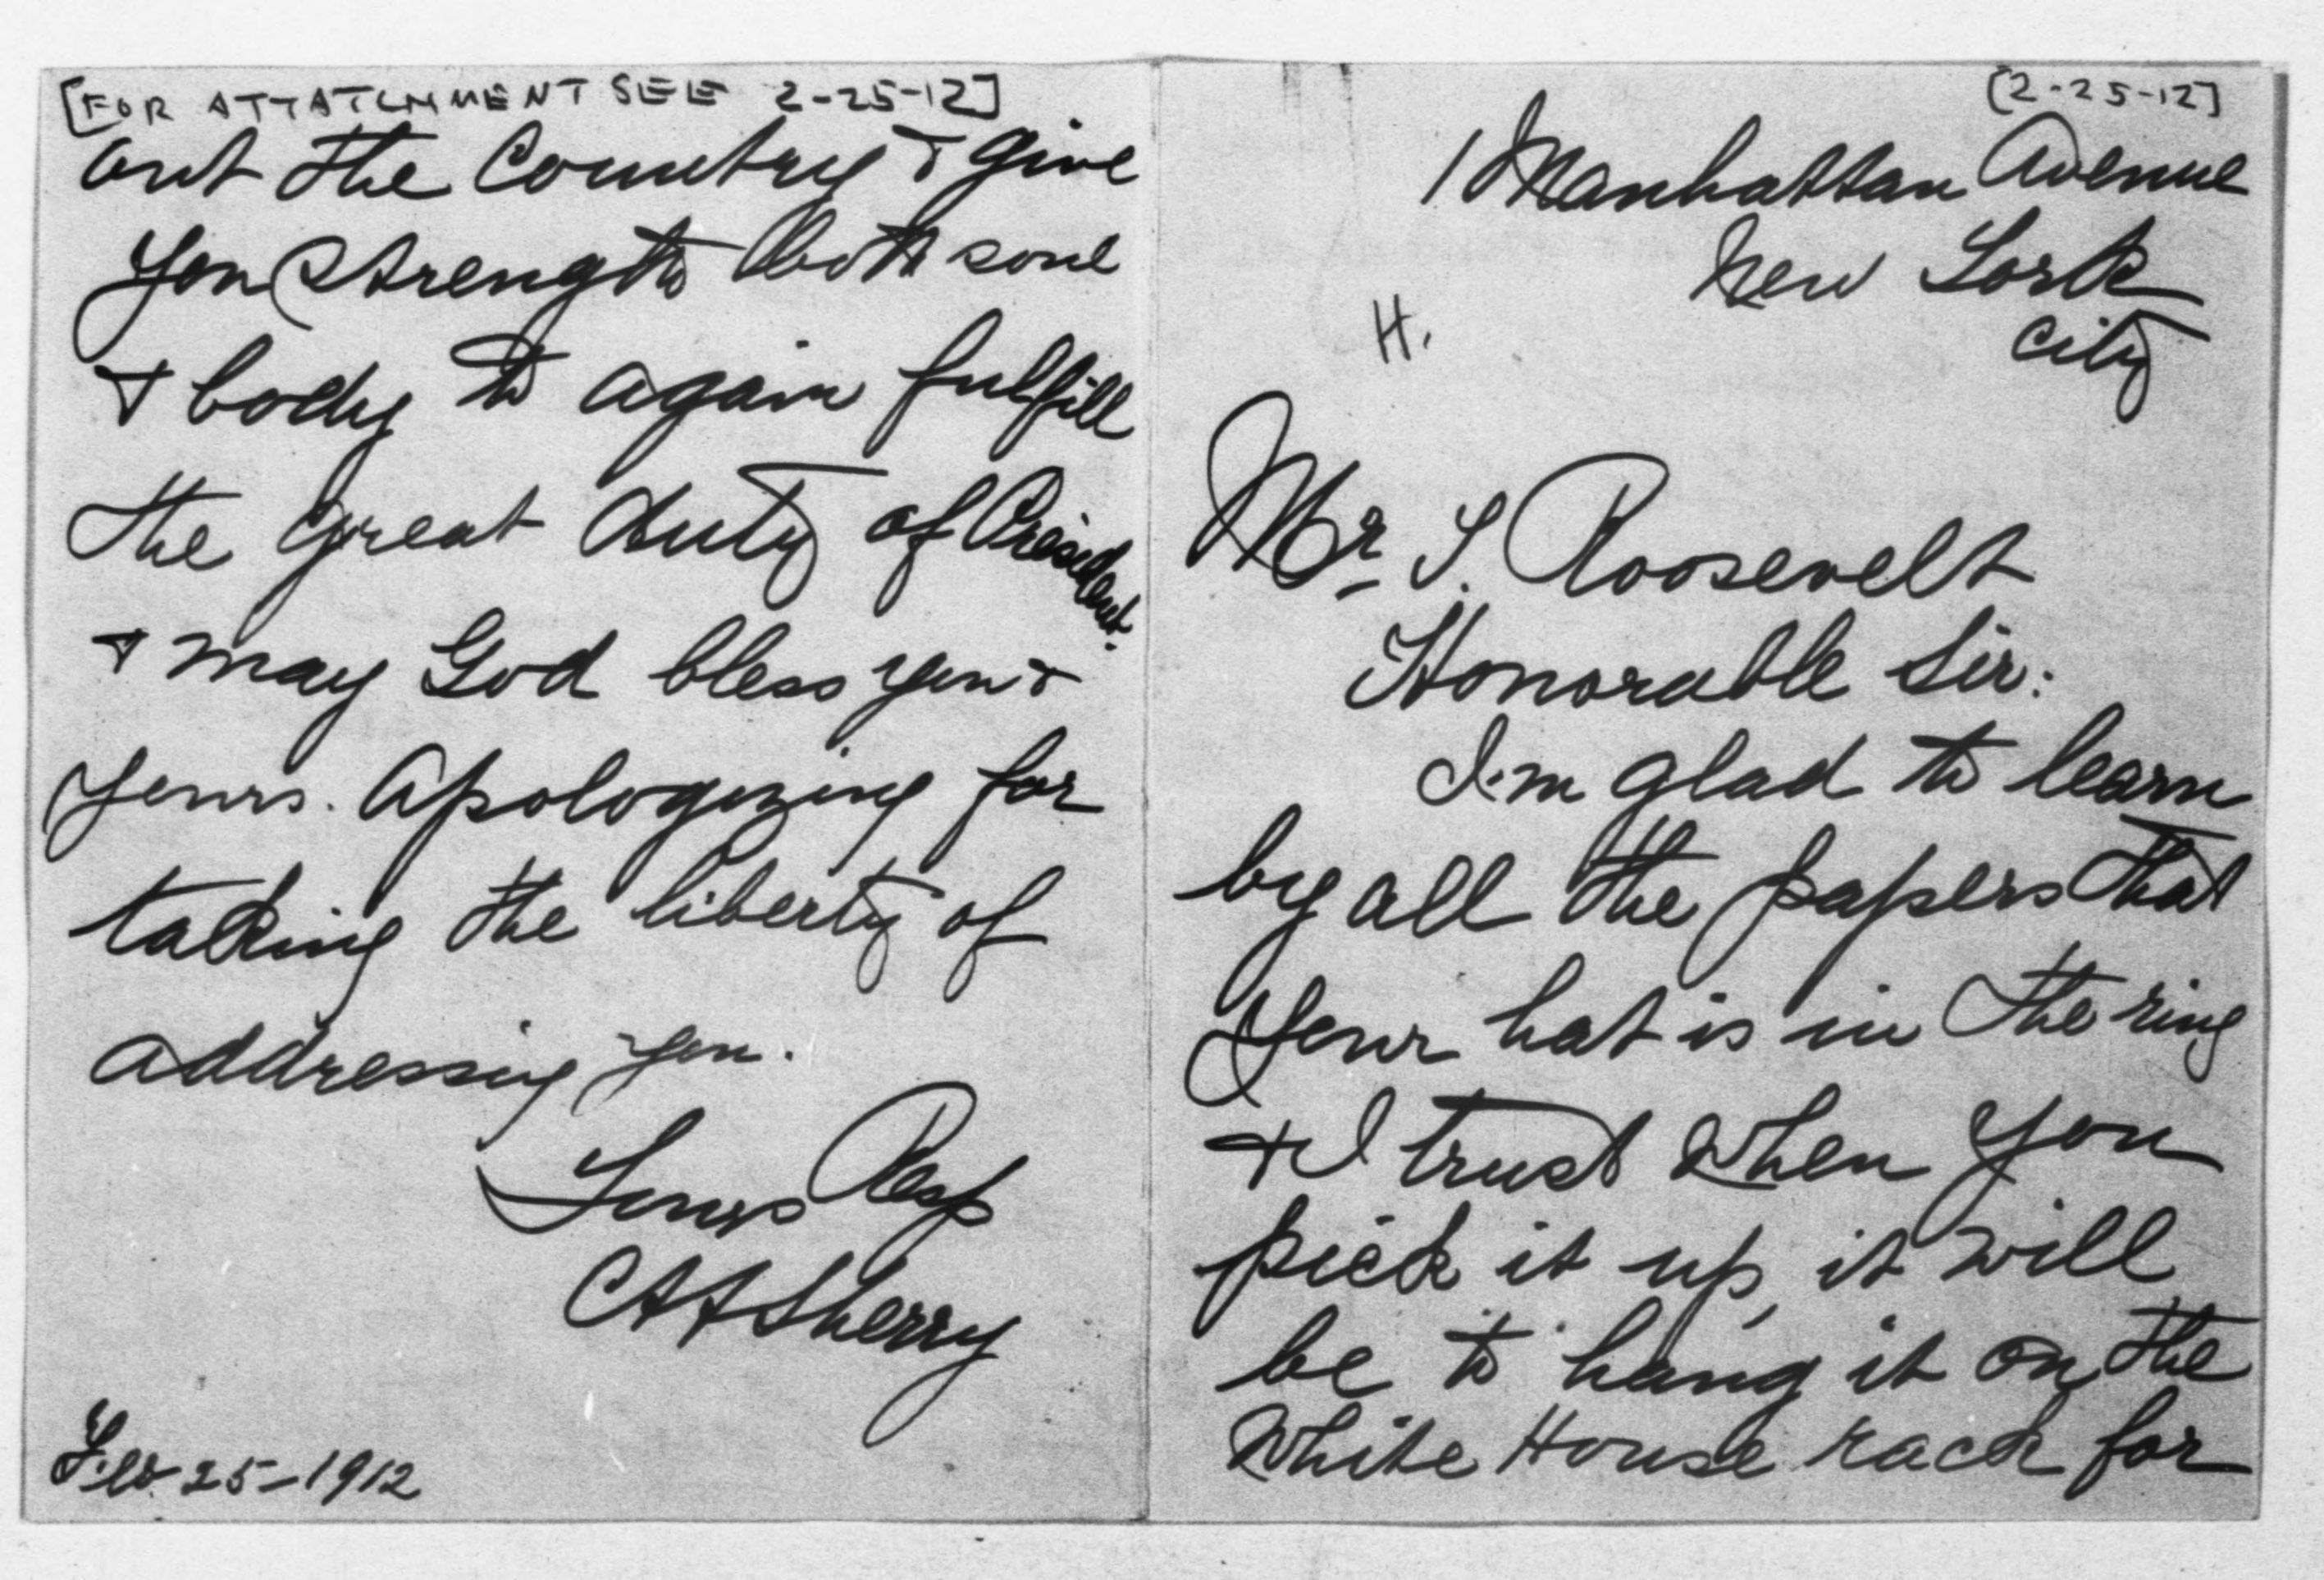 [2-25-12]
1 Manhattan Avenue
New York
City
H.
Mr. T. Roosevelt
Honorable Sir:
I'm glad to learn
by all the papers that
your hat is in the ring
& I trust when you
pick it up, it will
be to hang it on the
White House rack for
[FOR ATTATCHMENT SEE 2-25-12]
out the Country & give
you strength both soul
& body to again fulfill
the great duty of President.
& may God bless you &
yours. Apologizing for
taking the liberty of
addressing you.
Yours Resp
C A Sherry
Feb 25-1912